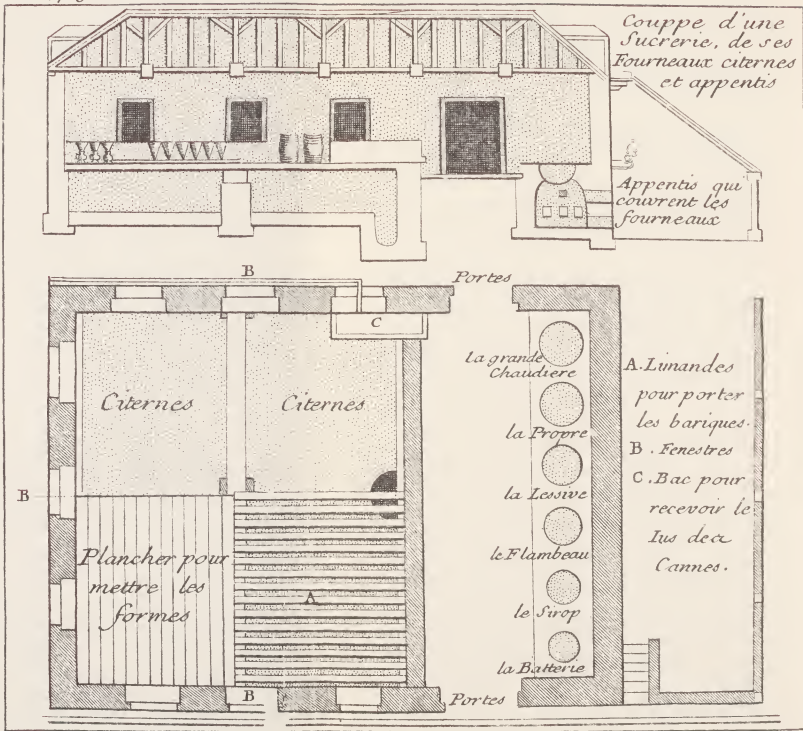 Couppe d'une
Sucrerie, de ses
Fourneaux citernes
et appentis
Appentis qui
couvrent les
fourneaux
B
Portes
C
Citernes
Citernes
B
Plancher pour
mettre les
formes
A
B
Portes
la grande
Chaudiere
la Propre
la Lessive
le Flambeau
le Sirop
la Batterie
A. Limandes
pour porter
les bariques.
B. Fenestres
C. Bac pour
recevoir le
Ius des
Cannes.